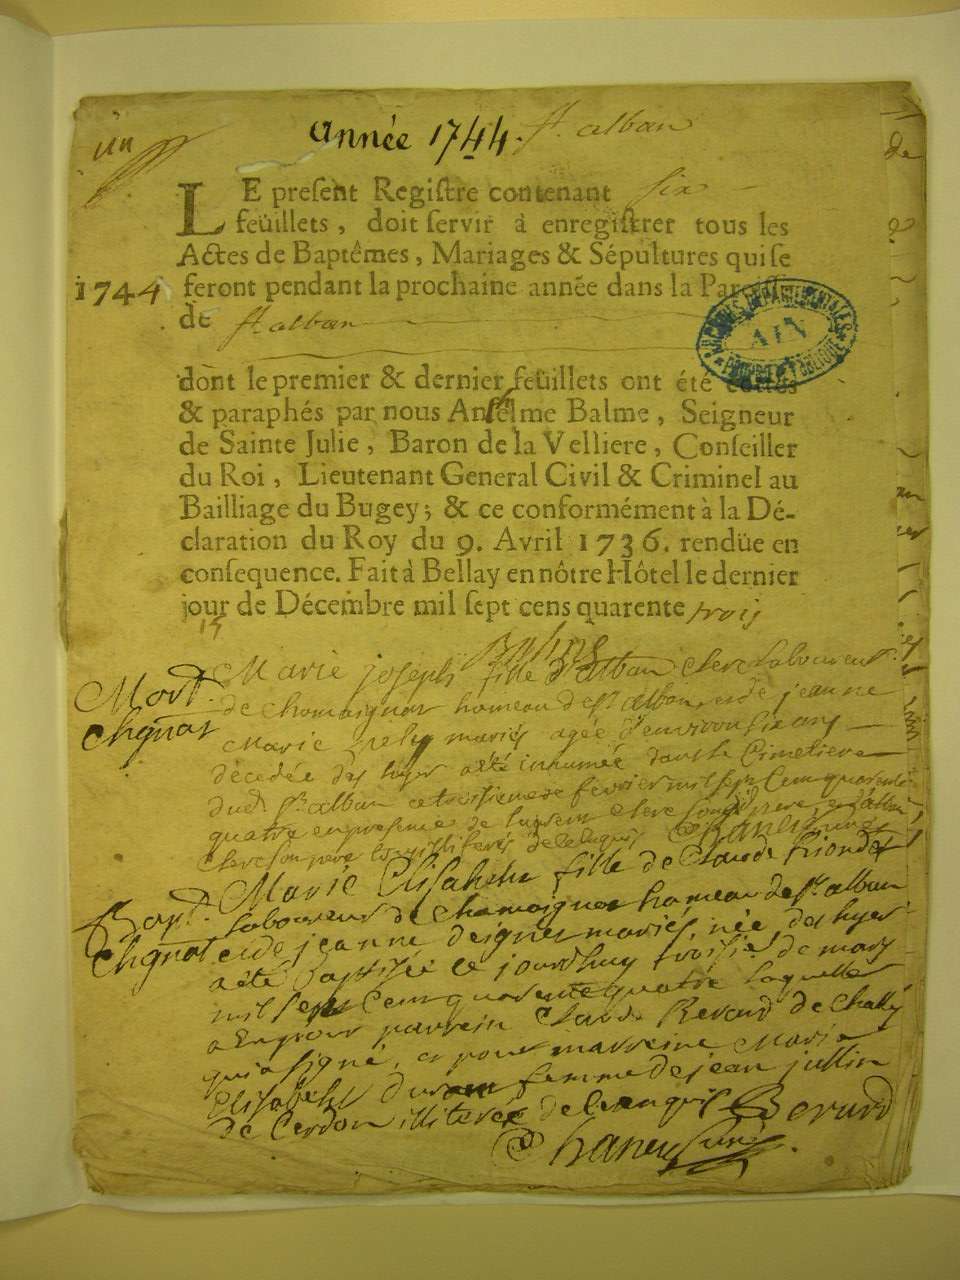 un
Année 1744. St. alban
LE present Registre contenant six
feüillets, doit servir à enregistrer tous les
Actes de Baptêmes, Mariages & Sépultures qui se
1744 feront pendant la prochaine année dans la Paroisse
de St. alban
ARCHIVES DÉPARTEMENTALES
AIN
PROPRIÉTÉ PUBLIQUE
dont le premier & dernier feüillets ont été cottés
& paraphés par nous Anthelme Balme, Seigneur
de Sainte Julie, Baron de la Velliere, Conseiller
du Roi, Lieutenant General Civil & Criminel au
Bailliage du Bugey; & ce conformément à la Dé-
claration du Roy du 9. Avril 1736. rendüe en
consequence. Fait à Bellay en nôtre Hôtel le dernier
jour de Décembre mil sept cens quarente trois
Balme
Mort. Marie joseph fille d'alban clerc laboureur
Chgnat de chamaignat hameau de st alban, et de jeanne
Marie mariés agée d'environ six ans
décédée des hyer a été inhumée dans le Cimetiere
dud. St. alban ce troisieme fevrier mil sept Cent quarente
quatre en presence de laurent clerc son pere, et d'alban
clerc son pere illiterés de ce enquis
Bapt. Marie Elisabeth fille de Claude Riondet
laboureur de chamaignat hameau de st. alban
Chgnat et de jeanne deignet mariés, née des hyer
a été Baptisée ce jourdhuy troisie. de mars
mil sept Cent quarente quatre laquelle
a Eu pour parrein Claude Berard de Chally
qui a signé, et pour marreine Marie
Elisabeth femme de jean jullin
de Cerdon illiterée de ce enquise Berard
Chaney Curé.